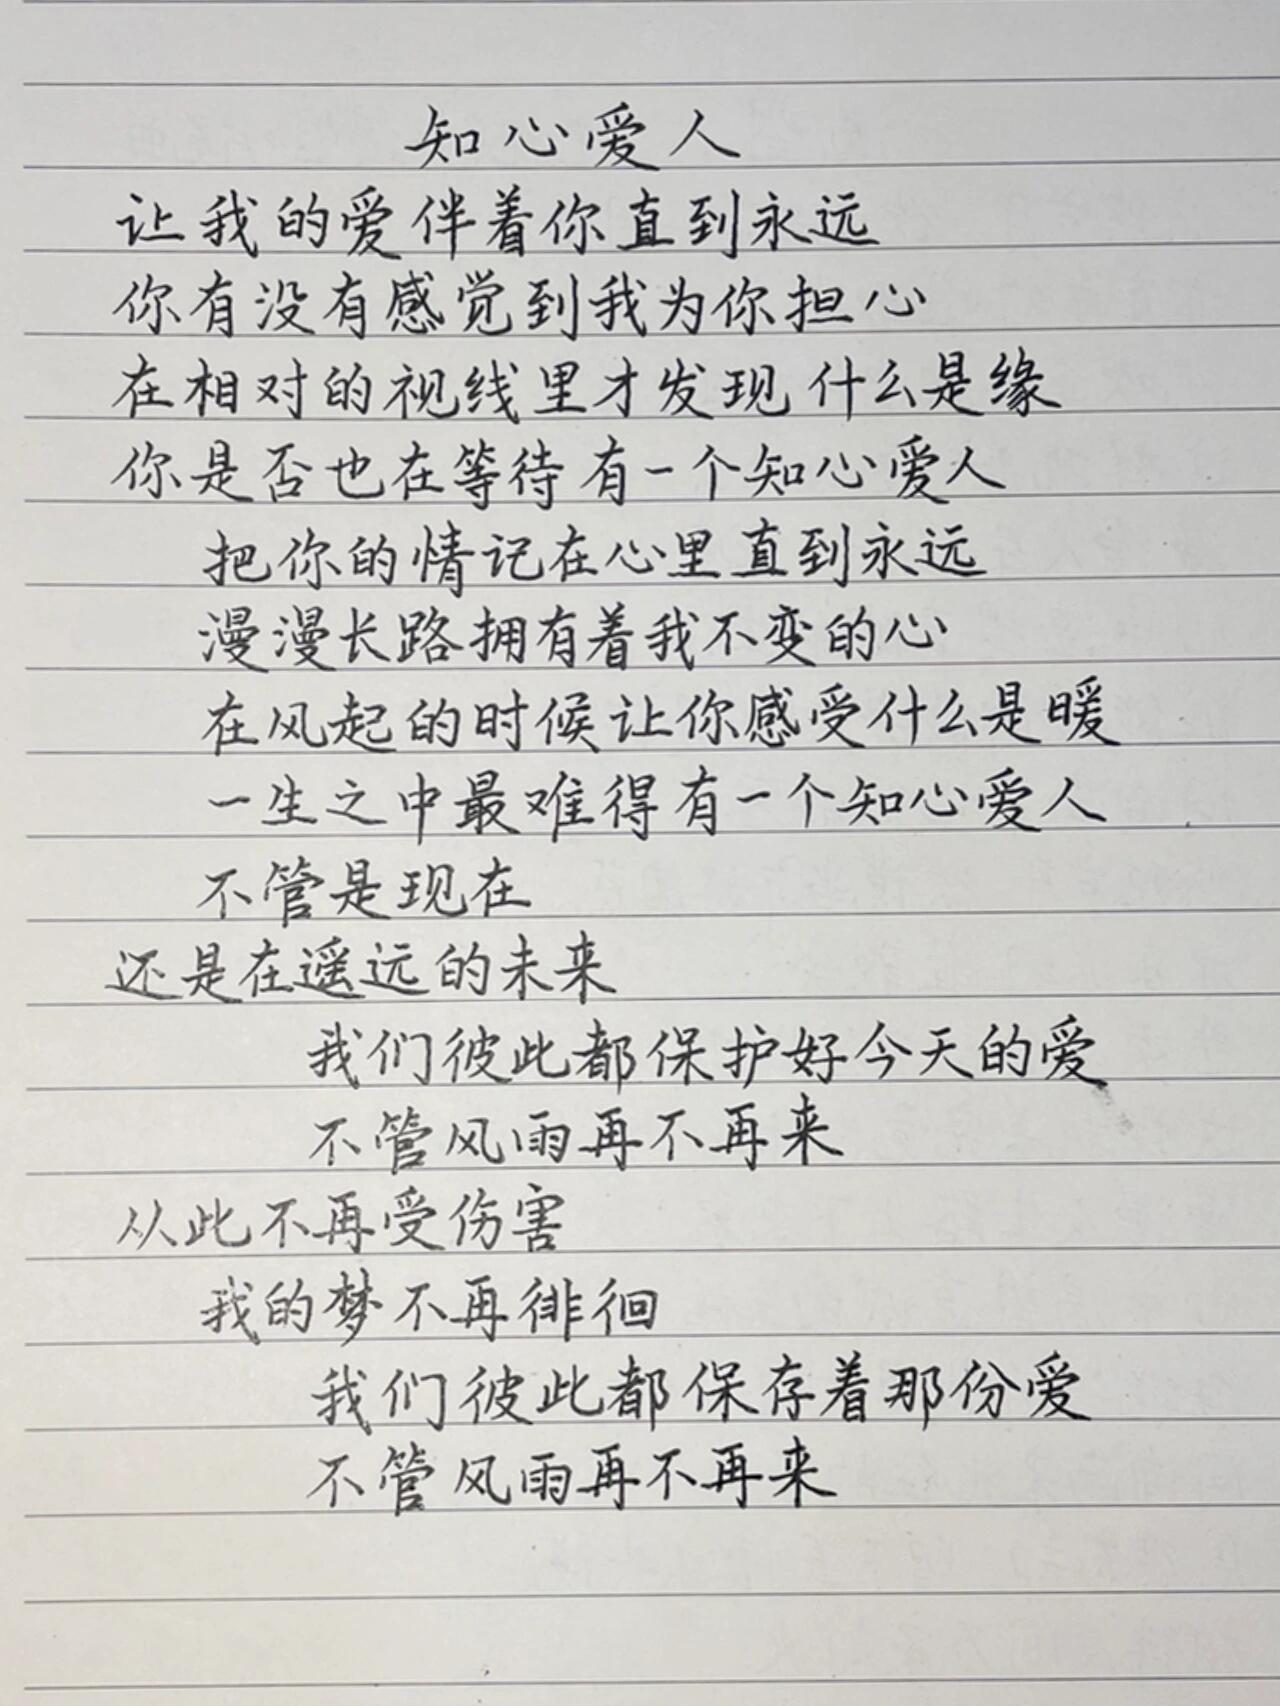 知心爱人
让我的爱伴着你直到永远
你有没有感觉到我为你担心
在相对的视线里才发现什么是缘
你是否也在等待有一个知心爱人
把你的情记在心里直到永远
漫漫长路拥有着我不变的心
在风起的时候让你感受什么是暖
一生之中最难得有一个知心爱人
不管是现在
还是在遥远的未来
我们彼此都保护好今天的爱
不管风雨再不再来
从此不再受伤害
我的梦不再徘徊
我们彼此都保存着那份爱
不管风雨再不再来